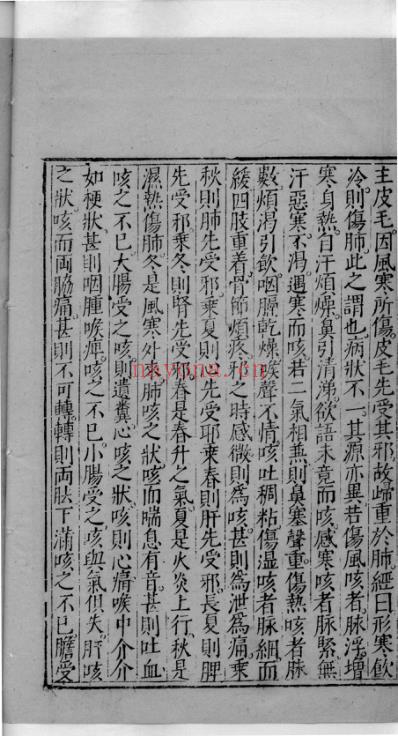 主皮毛因風寒所傷皮毛先受其邪故歸重於肺經曰形寒飲
冷則傷肺此之謂也病狀不一其源亦異若傷風咳者脉浮增
寒身熱自汗煩燥鼻引清涕欲語未竟而咳感寒咳者脉緊無
汗惡寒不渴遇寒而咳若二氣相無則鼻塞聲重傷熱咳者脉
數煩渴引飲咽膈乾燥喉聲不情咳吐稠粘傷濕咳者脉細而
緩四肢重着骨節煩疼邪之時感微則為咳甚則為泄為痛乘
秋則肺先受邪乘夏則心先受耶乘春則肝先受邪長夏則脾
先受邪乗冬則腎先受邪春是春升之氣夏是火炎上行秋是
濕熱傷肺冬是風寒外來肺咳之狀咳而喘息有音甚則吐血
咳之不已大腸受之咳則遺糞心咳之狀咳則心痛喉中介介
如梗狀甚則咽腫喉痺咳之不已小腸受之咳與氣俱失肝咳
之狀咳而兩脇痛甚則不可轉轉則兩胠下滿咳之不已膽受